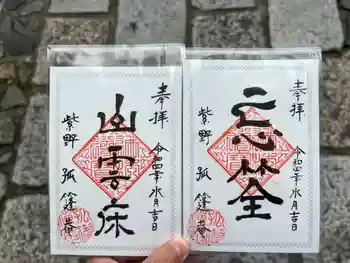 奉拝
令和四年水月吉日
山雲床
紫野 孤篷菴
奉拝
令和四年水月吉日
忘筌
紫野 孤篷菴